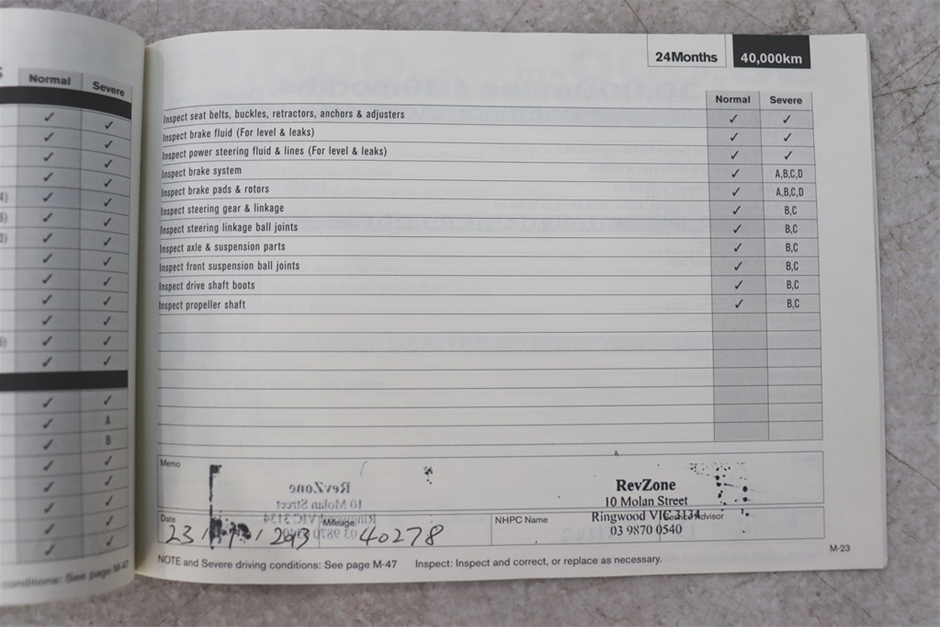 Normal Severe
✓ ✓
✓ ✓
✓ ✓
✓ ✓
✓ ✓
✓ ✓
✓ ✓
✓ ✓
✓ ✓
✓ ✓
✓ ✓
✓ ✓
✓ ✓
✓ ✓
✓ A
✓ B
✓ ✓
✓ ✓
✓ ✓
✓ ✓
✓ ✓
conditions: See page M-47
24Months 40,000km
Normal Severe
Inspect seat belts, buckles, retractors, anchors & adjusters ✓ ✓
Inspect brake fluid (For level & leaks) ✓ ✓
Inspect power steering fluid & lines (For level & leaks) ✓ ✓
Inspect brake system ✓ A,B,C,D
Inspect brake pads & rotors ✓ A,B,C,D
Inspect steering gear & linkage ✓ B,C
Inspect steering linkage ball joints ✓ B,C
Inspect axle & suspension parts ✓ B,C
Inspect front suspension ball joints ✓ B,C
Inspect drive shaft boots ✓ B,C
Inspect propeller shaft ✓ B,C
Memo
RevZone
10 Molan Street
Ringwood VIC 3134
03 9870 0540
Date Mileage NHPC Name Advisor
40278
NOTE and Severe driving conditions: See page M-47 Inspect: Inspect and correct, or replace as necessary.
M-23